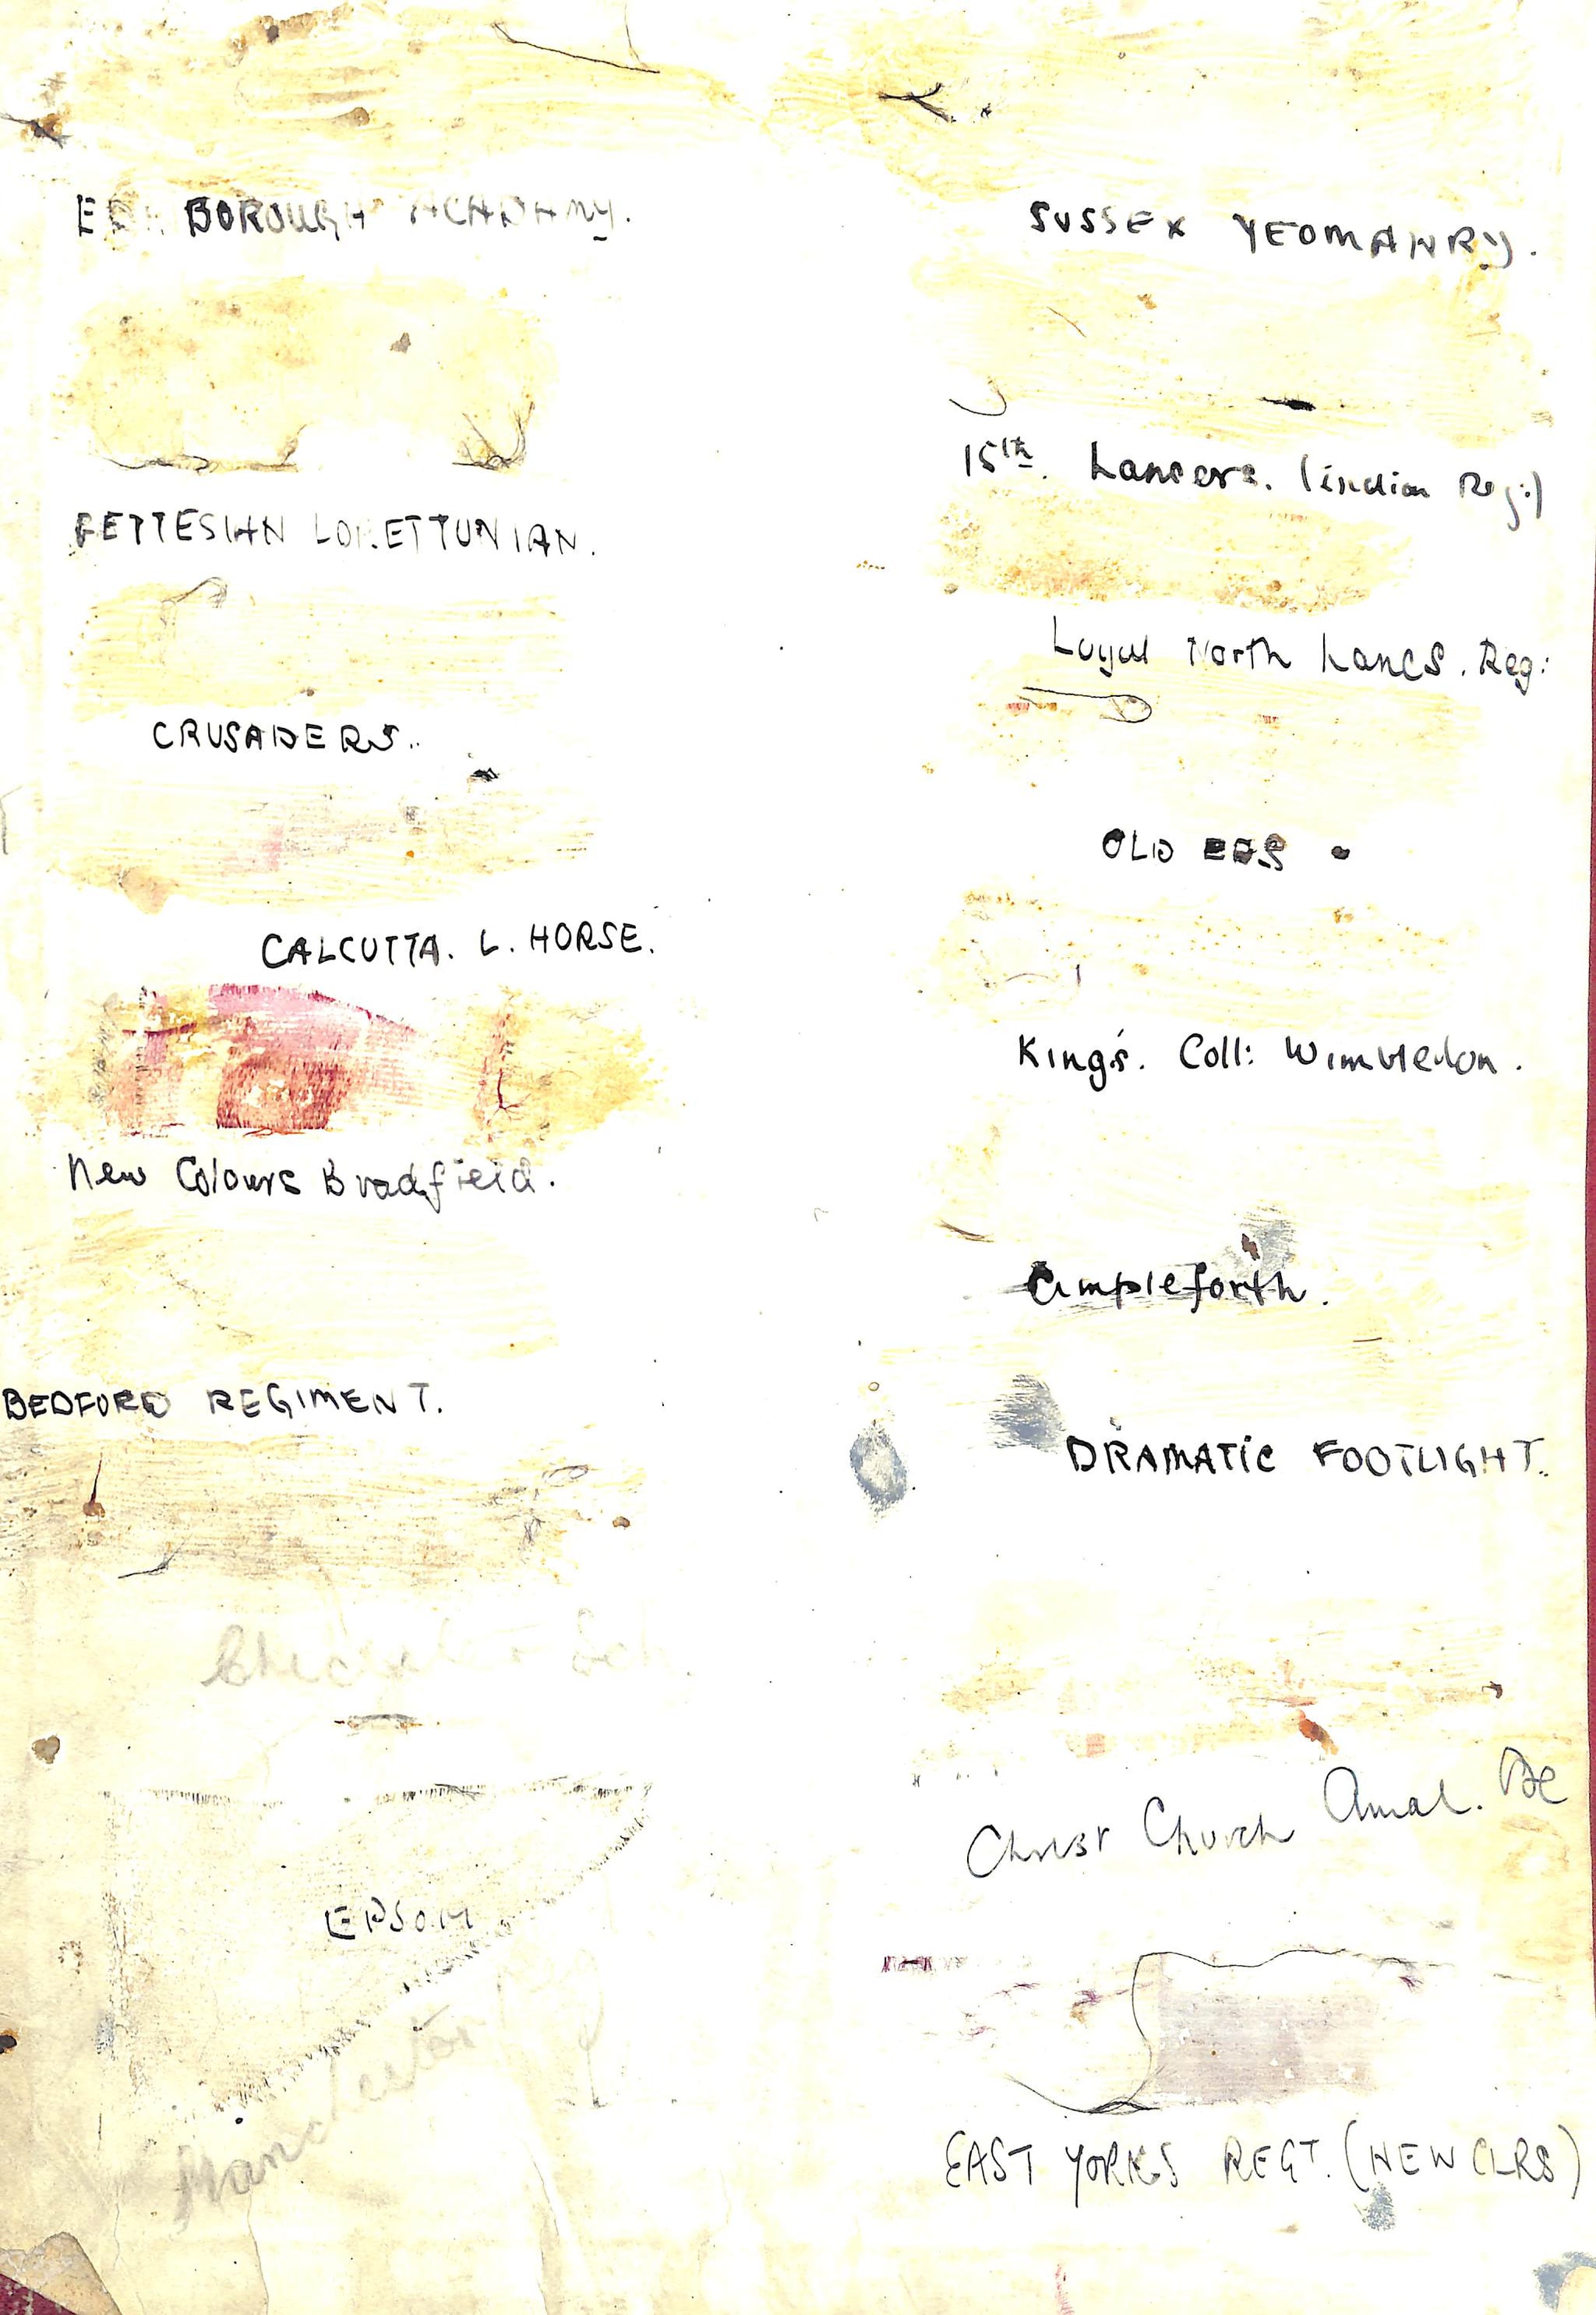 BOROUGH ACADAMY.
FETTESIAN LORETTUNIAN.
CRUSADERS.
CALCUTTA. L. HORSE.
New Colours Bradfield.
BEDFORD REGIMENT.
EPSOM
Manchester
SUSSEX YEOMANRY.
15th. Lancers. (indian Reg:)
Loyal North Lancs. Reg:
OLD
King's. Coll: Wimbledon.
Ampleforth.
DRAMATIC FOOTLIGHT.
Christ Church Amal.
EAST YORKS REGT. (NEW CLRS)